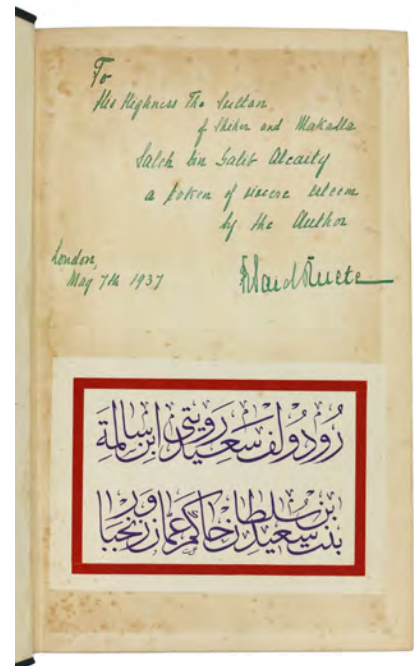 To
His Highness The Sultan
of Shiher and Makalla
Saleh bin Galib Alcaity
a token of sincere esteem
by the Author
London,
May 7th 1937
RSaidRuete
رُودُولف سَعِيد رويتي ابن سالمة
بنت سعيد بن سلطان حاكم عمان وزنجبار